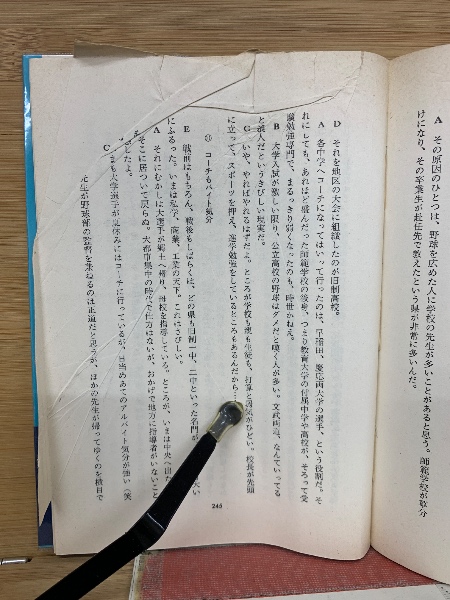 A その原因のひとつは、野球を広めた人に学校の先生が多いことがあると思う。師範学校が取分
けになり、その卒業生が赴任先で教えたという県が非常に多いんだ。
D それを地区の大会に組織したのが旧制高校。
A 各中学へコーチになってはいって行ったのは、早稲田、慶応両大学の選手、という役割だ。そ
れにしても、あれほど盛んだった師範学校の後身、つまり教育大学の付属中学や高校が、そろって受
験勉強専門で、まるっきり弱くなったのも、時世かねえ。
B 大学入試が厳しい限り、公立高校の野球はダメだと嘆く人が多い。文武両道、なんていってる
と浪人だというきびしい現実だ。
G いや、やればやれるはずだよ。ところが学校も親も生徒も、打算と囚気がひどい。校長が先頭
に立って、スポーツを押え、進学勉強をしているところもあるんだから
⑪ コーチもバイト気分
E 戦前はもちろん、戦後もしばらくは、どの県も旧制一中、二中といった名門が
にふるった。いまは私学、商業、工業の天下。これはさびしい。
A それにむかしは大選手が郷土へ帰り、母校を指導している。ところが、いまは中央へ出た
そこに居ついて戻らぬ。大都市集中の時代で仕方はないが、おかげで地方に指導者がいないこと
だよ。
C いまも大学選手が夏休みにはコーチに行っているが、日当めあてのアルバイト気分が強い（笑
先生が野球部の監督を兼ねるのは正道だと思うが、ほかの先生が帰ってゆくのを横目で
245